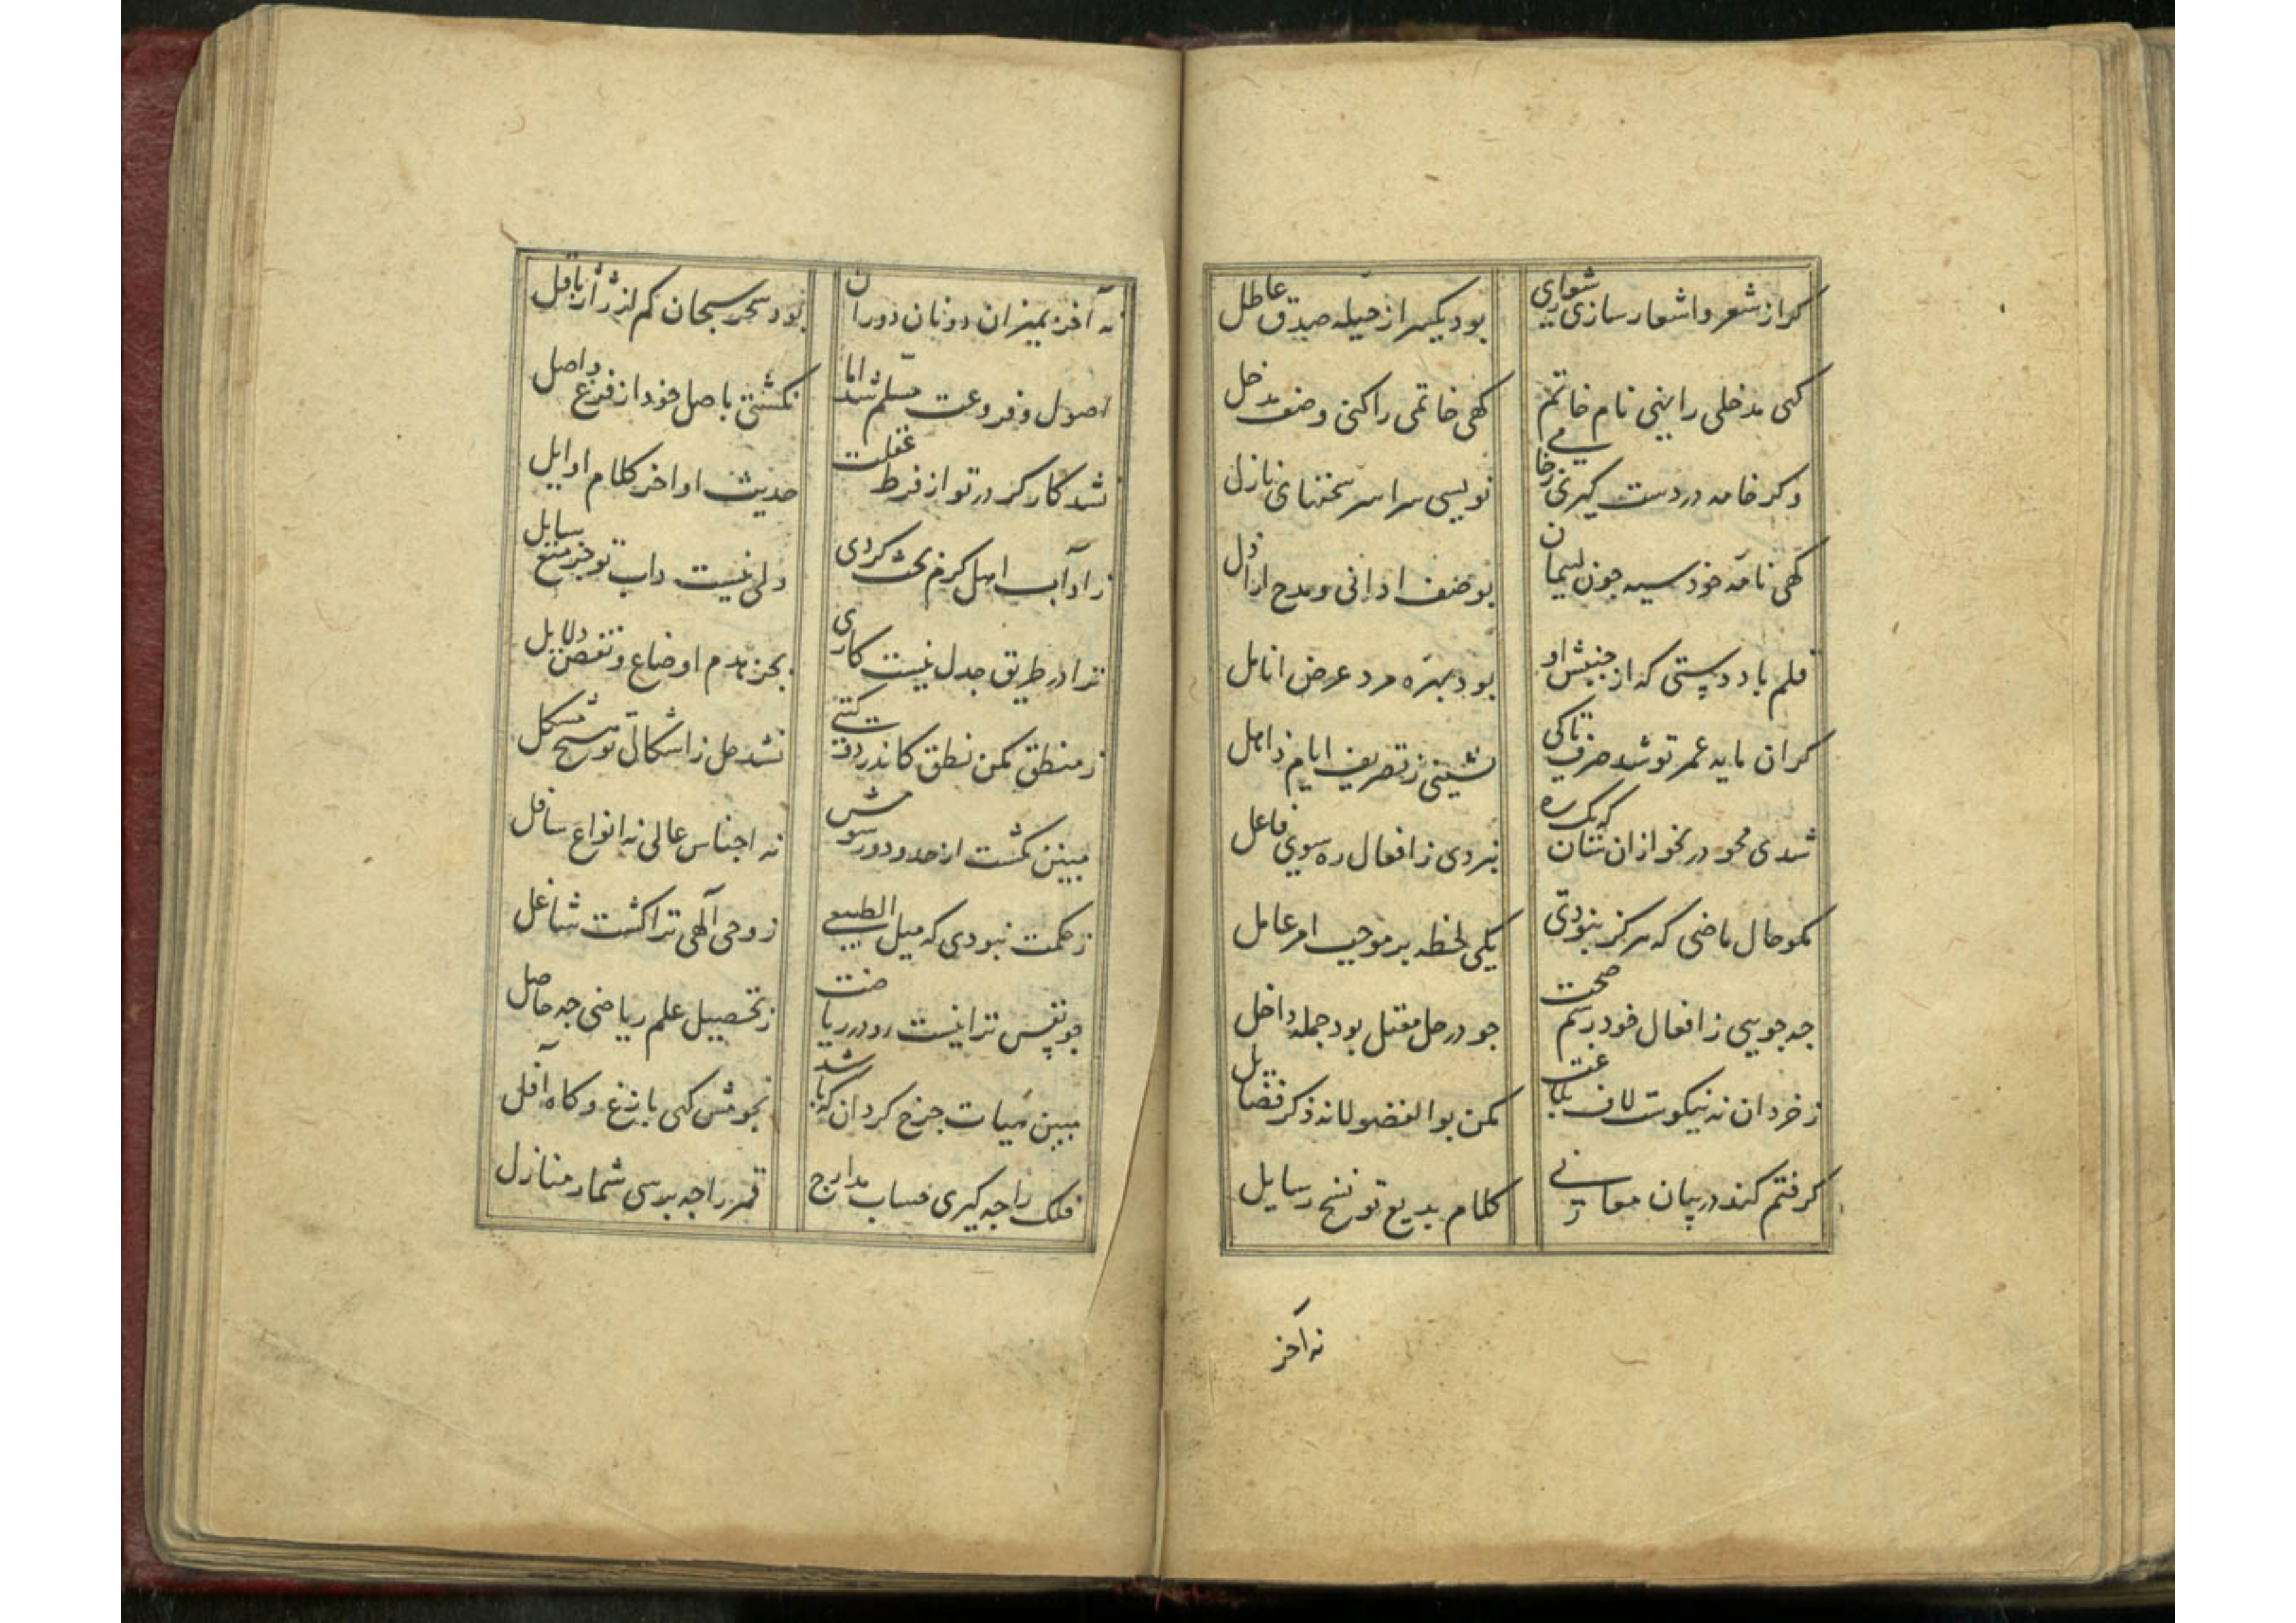 کر از شعر و اشعار سازی شعاری
بود یکسر از حیله صدق عاطل
کهی مدخلی را نهی نام خاتم
کهی خاتمی را کنی وصف مدخل
وکر خامه در دست کیری
نویسی سراسر سخنهای نازل
کهی نامه خود سیه چون لئیمان
بوصف ادانی و مدح اراذل
قلم باد دستی که از جنبش او
بود بهره مرد عرض انامل
کران مایه عمر تو شد صرف تا کی
نشینی ز تصریف ایام ذاهل
شدی محو در نحو ازان سان که یک ره
نبردی ز افعال ره سوی فاعل
مکو حال ماضی که هرکز نبودی
یکی لحظه بر موجب امر عامل
چه جویی ز افعال خود رسم صحت
چو در حل معتل بود جمله داخل
ز خردان نه نیکوست لاف بلاغت
مکن بوالفضولانه ذکر فضایل
کرفتم کند در بیان معانی
کلام بدیع تو نسخ رسایل
نه آخر
نه آخر بمیزان دونان دوران
بود سحر سحبان کم از ژاژ باقل
اصول و فروعت مسلم شد اما
نکشتی باصل خود از فرع واصل
نشد کارکر در تو از فرط غفلت
حدیث اواخر کلام اوایل
ز آداب اهل کرم بحث کردی
ولی نیست داب تو جز منع سایل
ترا در طریق جدل نیست کاری
بجز هدم اوضاع و نقض دلایل
ز منطق مکن نطق کاندر دو کیتی
نشد حل ز اشکال تو هیچ مشکل
مبین کشت از حدود و رسومش
نه اجناس عالی نه انواع سافل
ز حکمت نبودی که میل الطبیعی
ز وحی آلهی ترا کشت شاغل
چو نفس ترا نیست رو در ریاضت
ز تحصیل علم ریاضی چه حاصل
مبین هیات چرخ کردان که باشد
نجومش کهی بازغ و کاه آفل
فلک را چه کیری حساب مدارج
قمر را چه پرسی شمار منازل